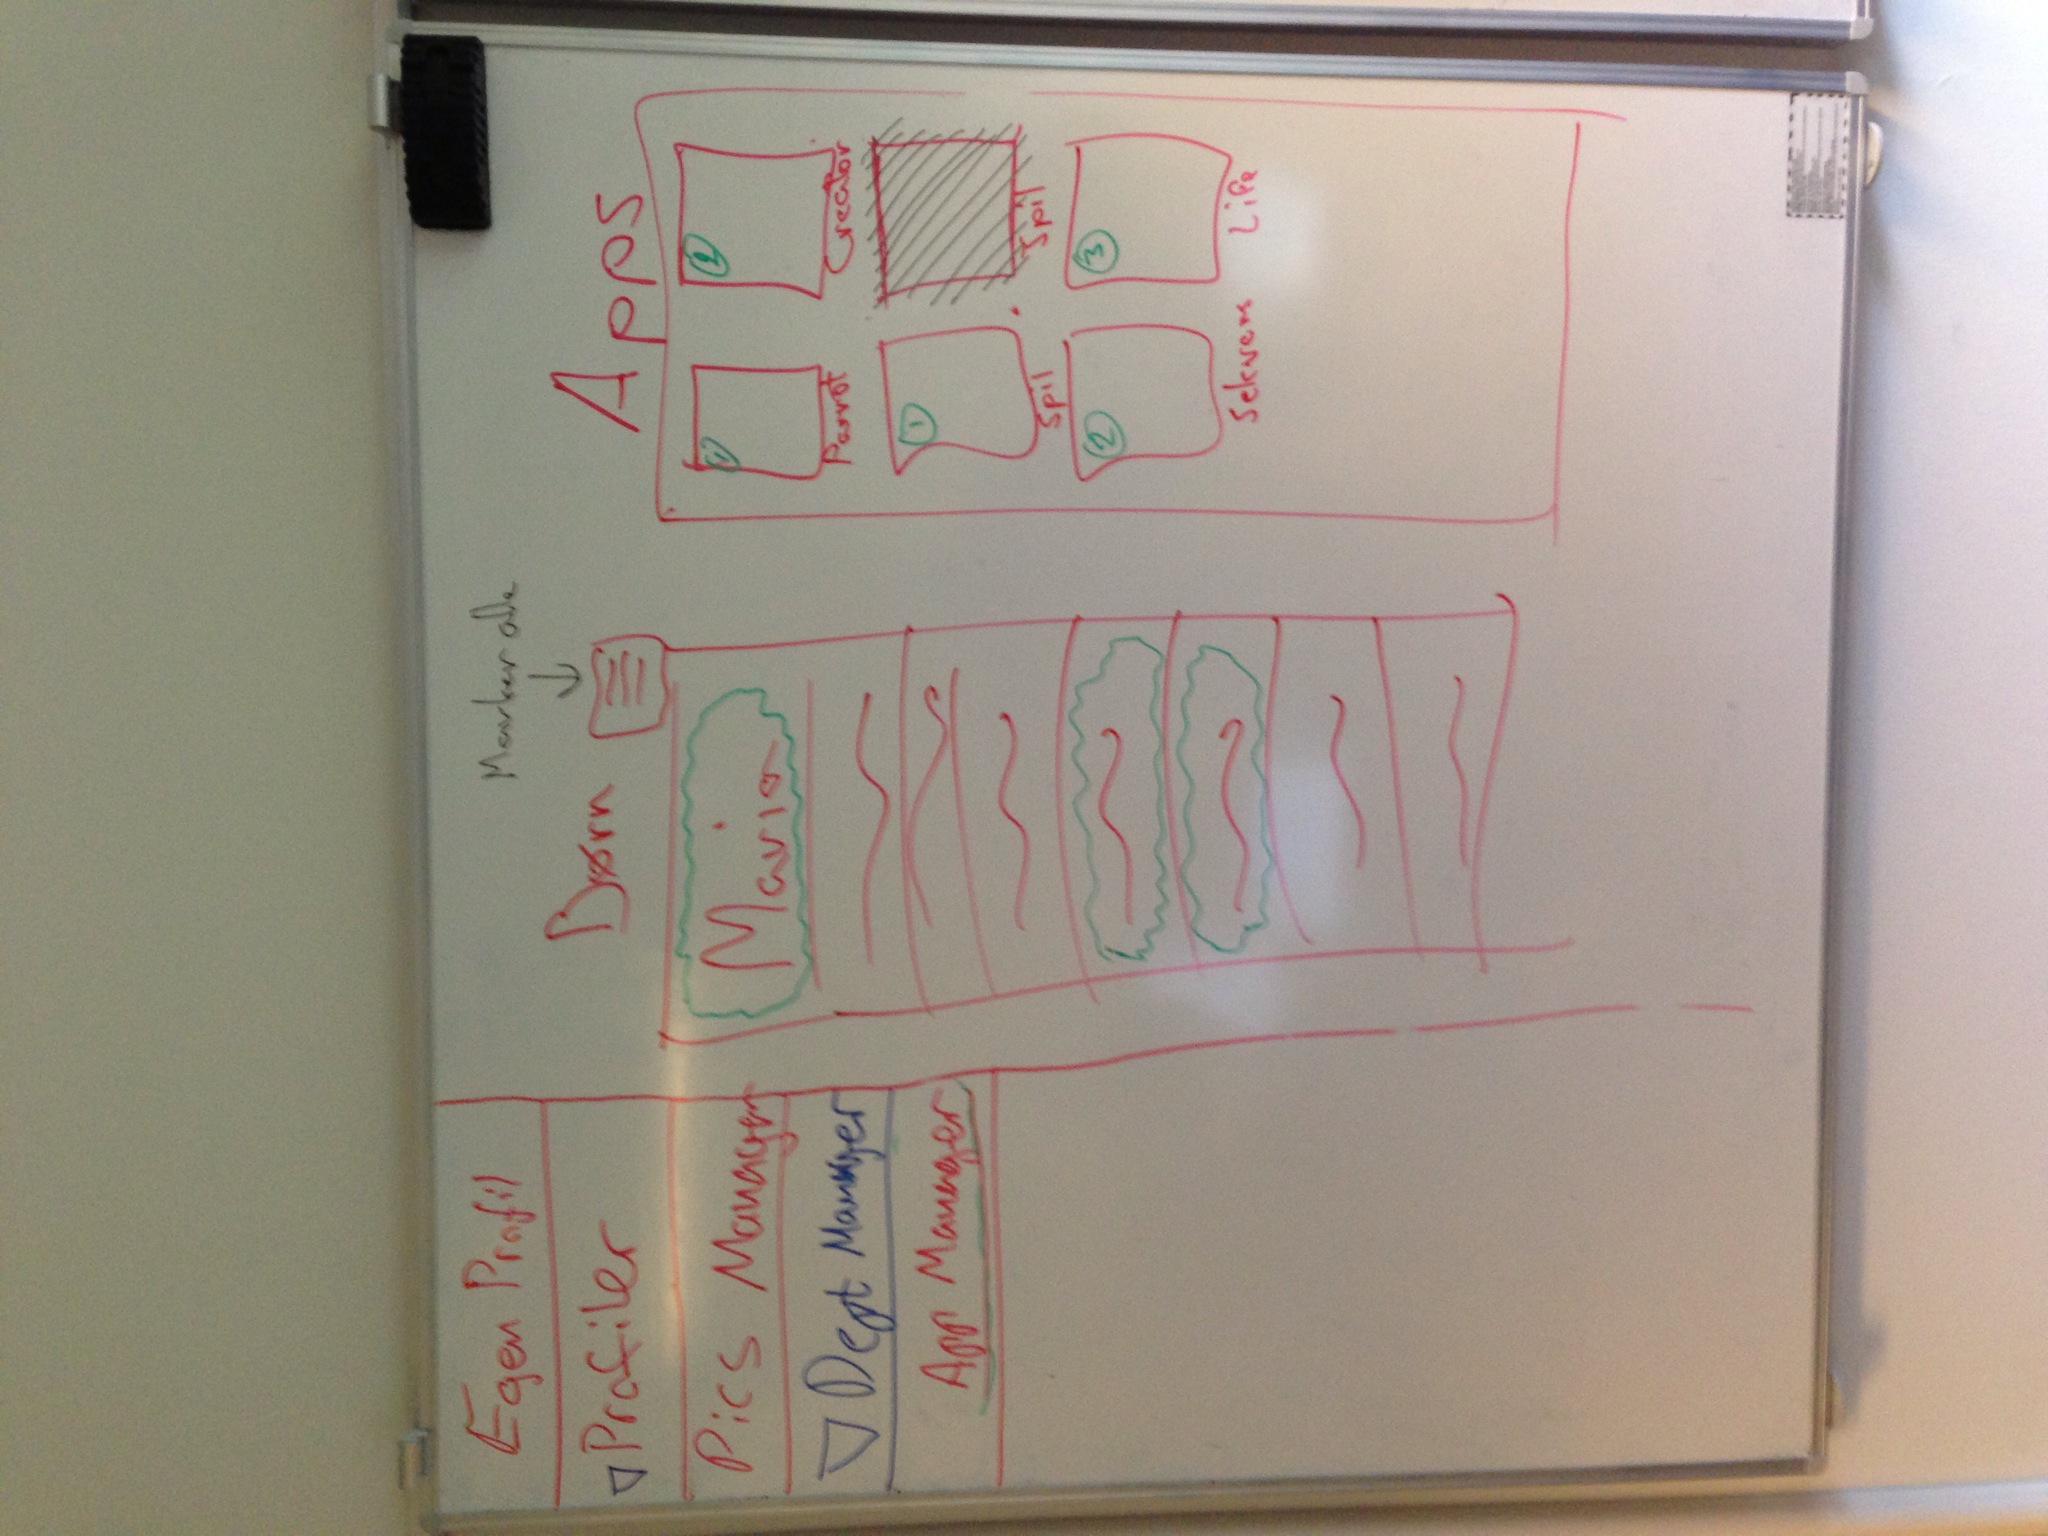 Egen Profil
Profiler
Pics Manager
Dept Manager
App Manager
Marker alle
Børn
Maria
Apps
1
2
Parrot
Creator
1
Spil
Spil
2
3
Sekvens
Life